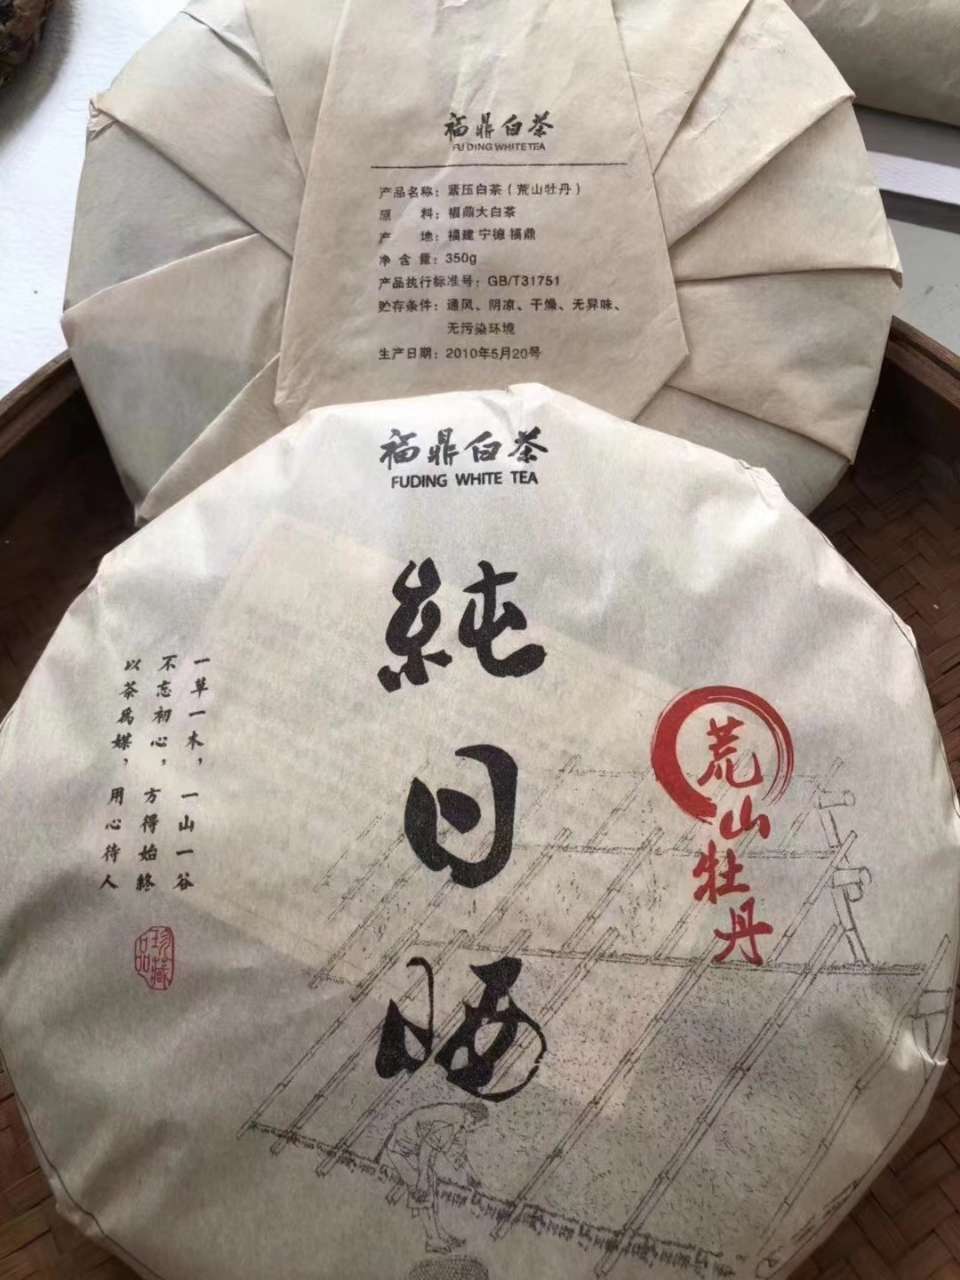 福鼎白茶
FUDING WHITE TEA
产品名称：紧压白茶（荒山牡丹）
原 料：福鼎大白茶
产 地：福建 宁德 福鼎
净 含 量：350g
产品执行标准号：GB/T31751
贮存条件：通风、阴凉、干燥、无异味、
无污染环境
生产日期：2010年5月20号
福鼎白茶
FUDING WHITE TEA
純日晒
荒山牡丹
一草一木，一山一谷
不忘初心，方得始終
以茶為媒，用心待人
珍藏品